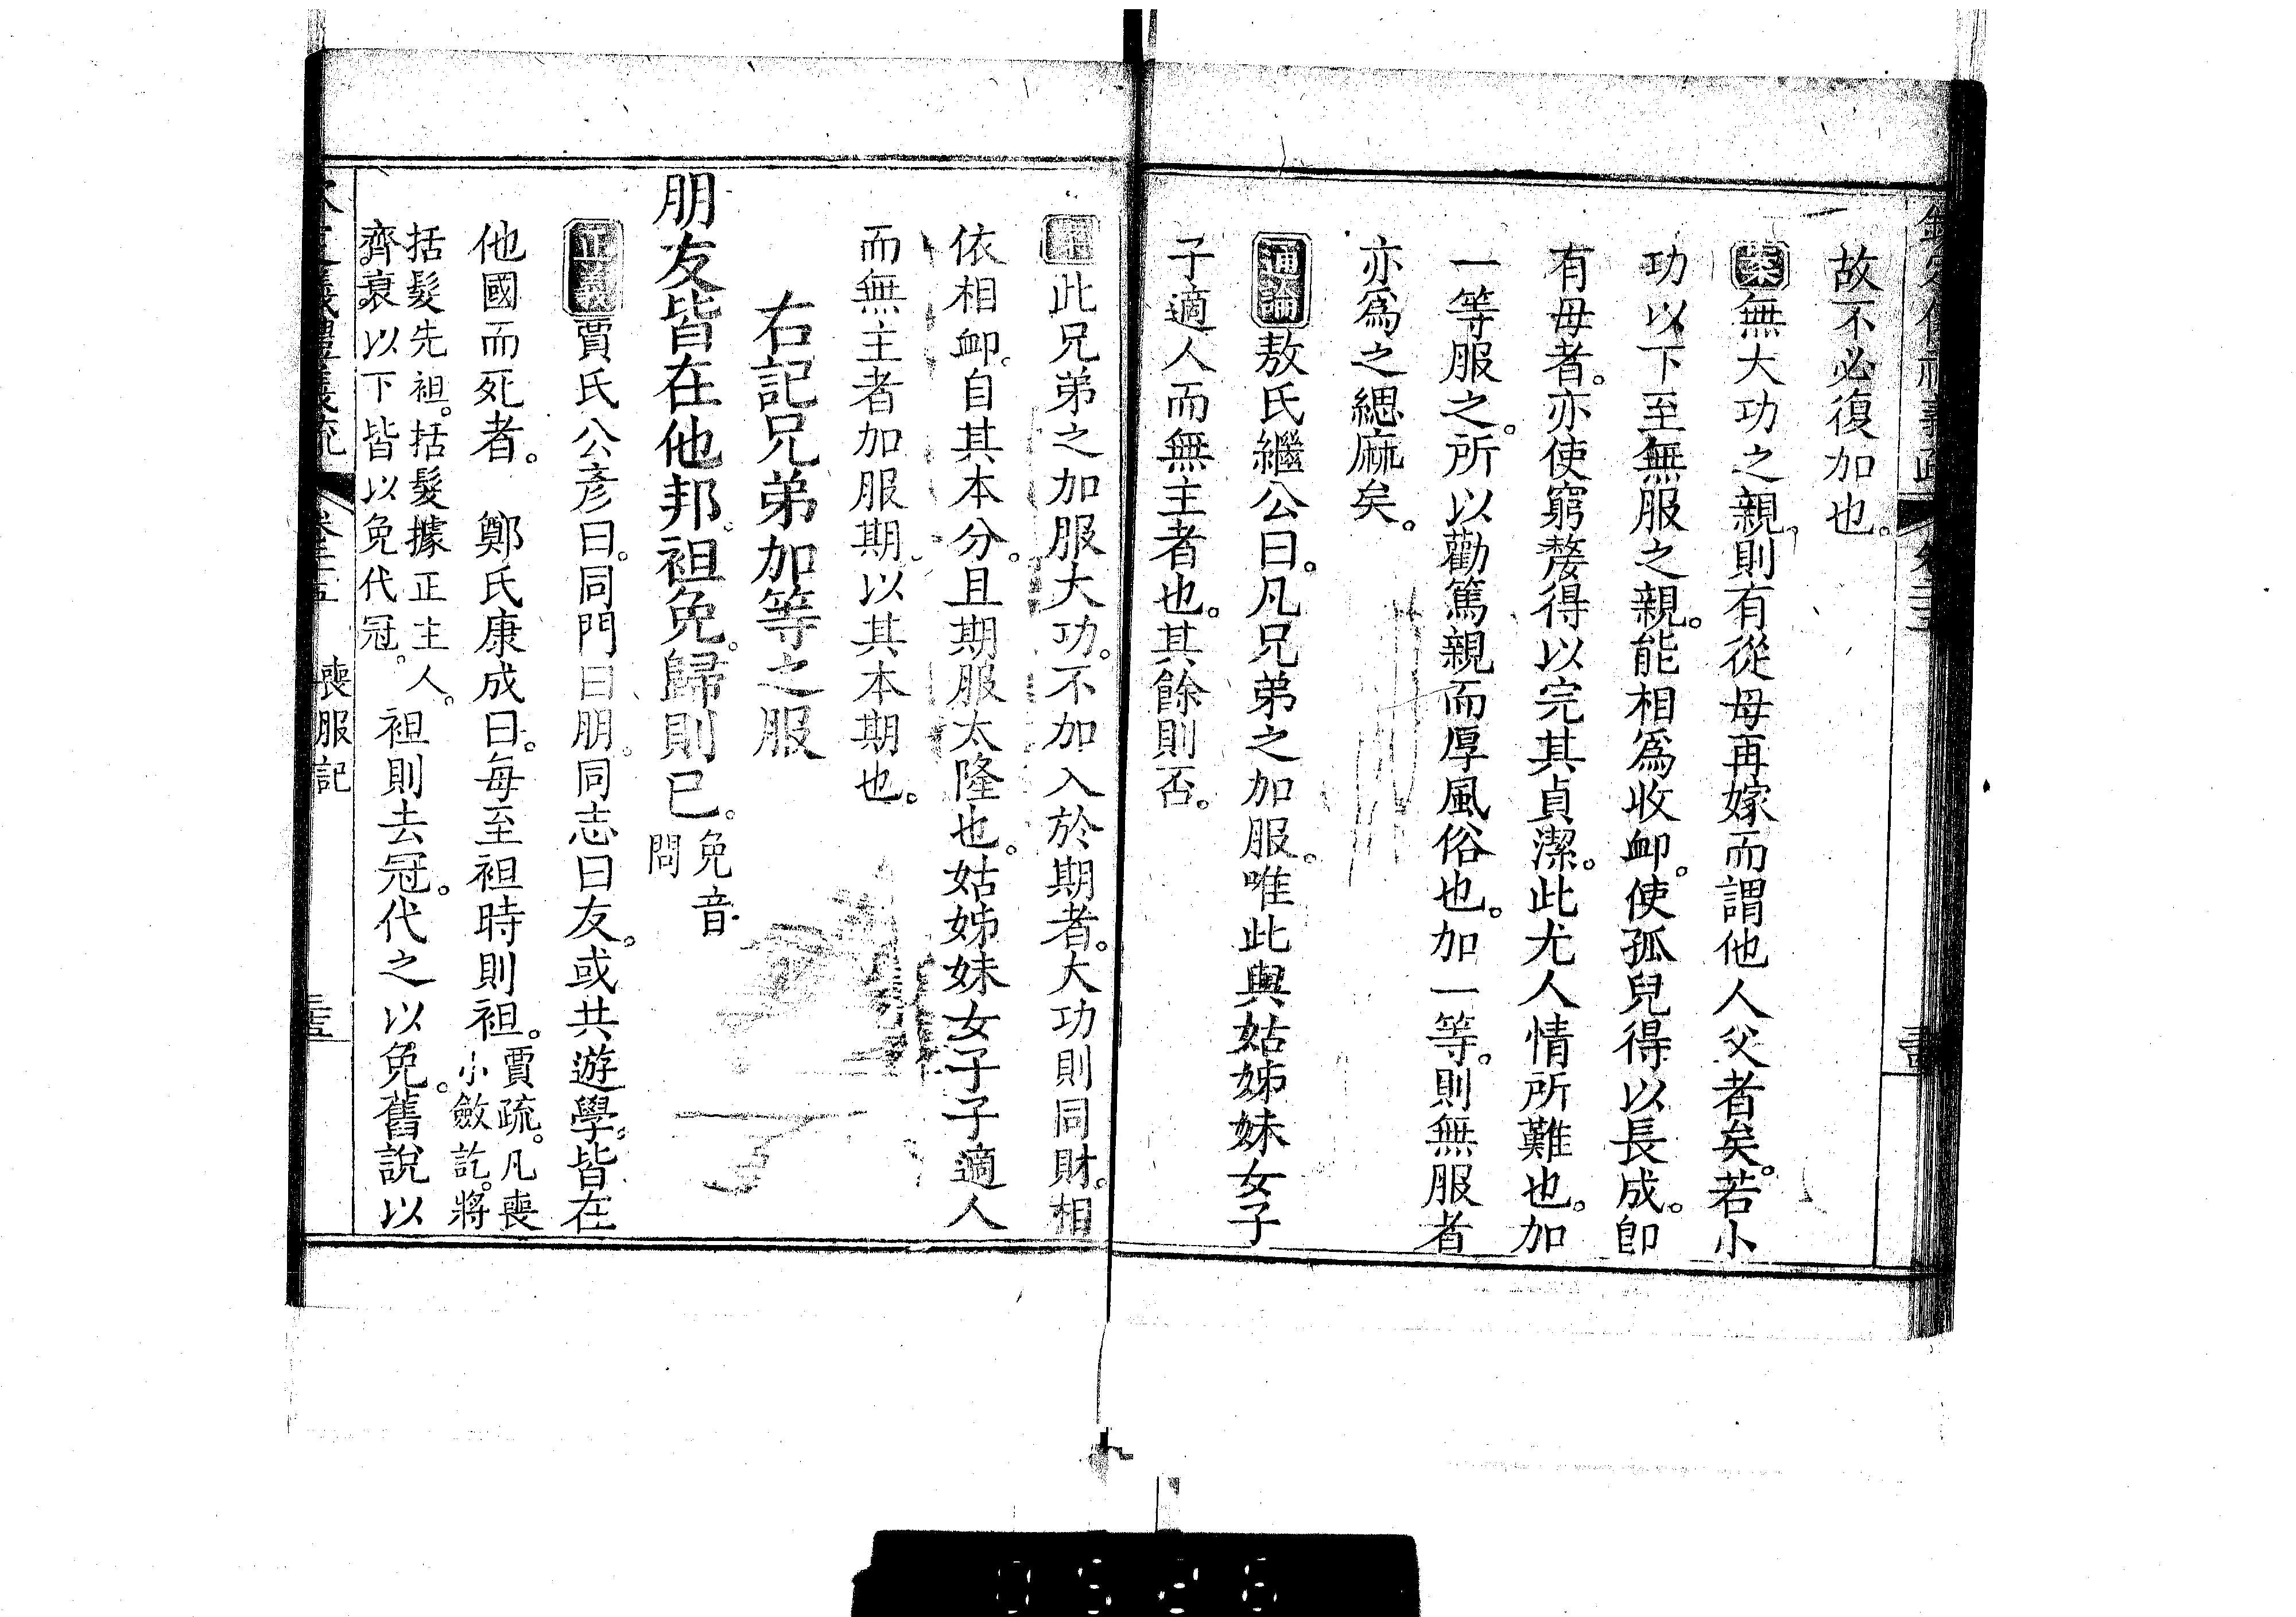 故不必復加也。
案無大功之親。則有從母再嫁而謂他人父者矣。若小
功以下至無服之親。能相爲收卹。使孤兒得以長成。卽
有母者。亦使窮嫠得以完其貞潔。此尤人情所難也。加
一等服之。所以勸篤親而厚風俗也。加一等。則無服者
亦爲之緦麻矣。
通論敖氏繼公曰。凡兄弟之加服。唯此與姑姊妹女子
子適人而無主者也。其餘則否。
案此兄弟之加服大功。不加入於期者。大功則同財。相
依相卹。自其本分。且期服太隆也。姑姊妹女子子適人
而無主者加服期。以其本期也。
右記兄弟加等之服
朋友皆在他邦。袒免。歸則已。免音
問
正義賈氏公彥曰。同門曰朋。同志曰友。或共遊學。皆在
他國而死者。 鄭氏康成曰。每至袒時則袒。賈疏。凡喪
小斂訖。將
括髮先袒。括髮據正主人。
齊衰以下皆以免代冠。
袒則去冠。代之以免。舊說以
喪服記